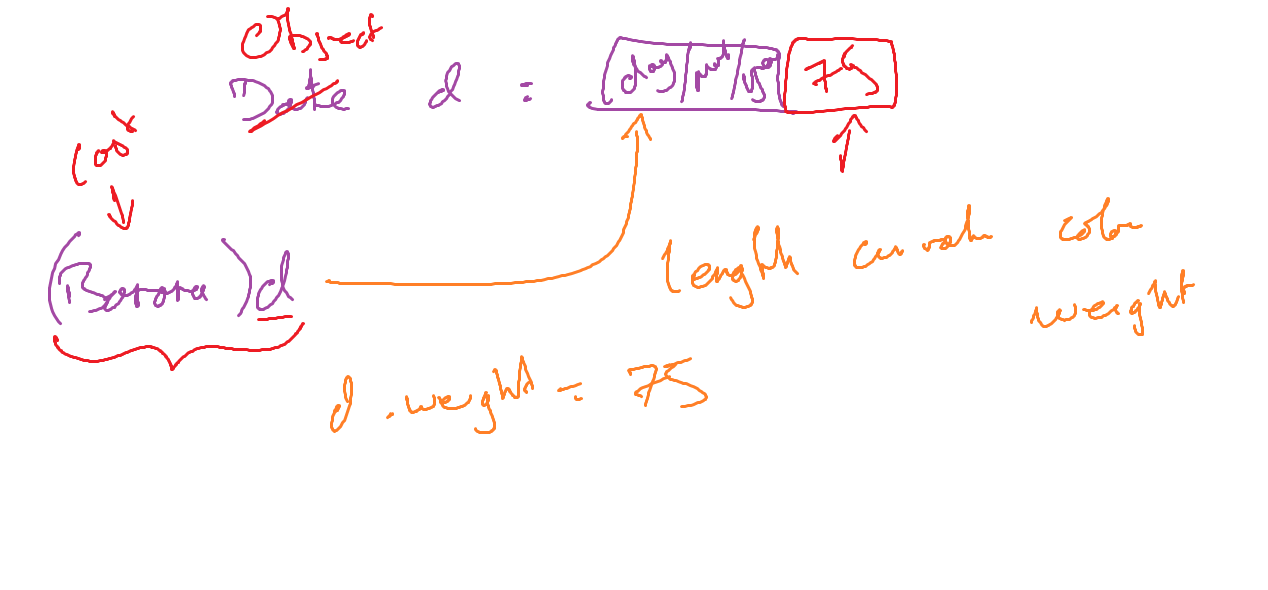 Object
Date d = day mnt year 75
cast
(Banana) d
length curvature color
weight
d.weight = 75